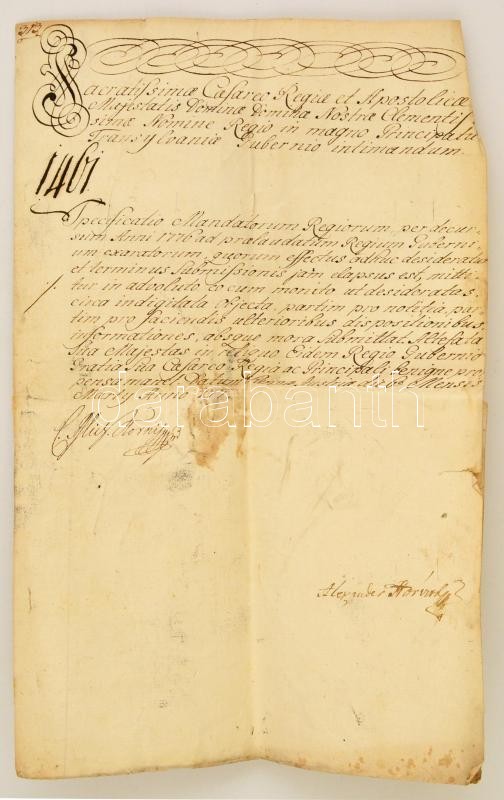 313
Sacratissimæ Cæsareo Regiæ et Apostolicæ
Majestatis Dominæ Dominæ Nostræ Clementis-
simæ Nomine Regio in magno Principatu
Transylvaniæ Gubernio intimandum.
1461
Specificatio Mandatorum Regiorum per decur-
sum Anni 1776 ad prælaudatum Regium Guberni-
um exaratorum, quorum effectus adhuc desideratur
et terminus submissionis jam elapsus est, mitti-
tur in advoluto eo cum monito ut desideratas
circa indigitata objecta, partim pro notitia, par-
tim pro faciendis ulterioribus dispositionibus,
informationes, absque mora submittat. Altefata
Sua Majestas in reliquo Eidem Regio Gubernio
Gratia Sua Cæsareo Regia ac Principali benigne pro-
pensa manet. Datum Viennæ Austriæ die Mensis
Martij Anno
Alexander Horváth
darabanth